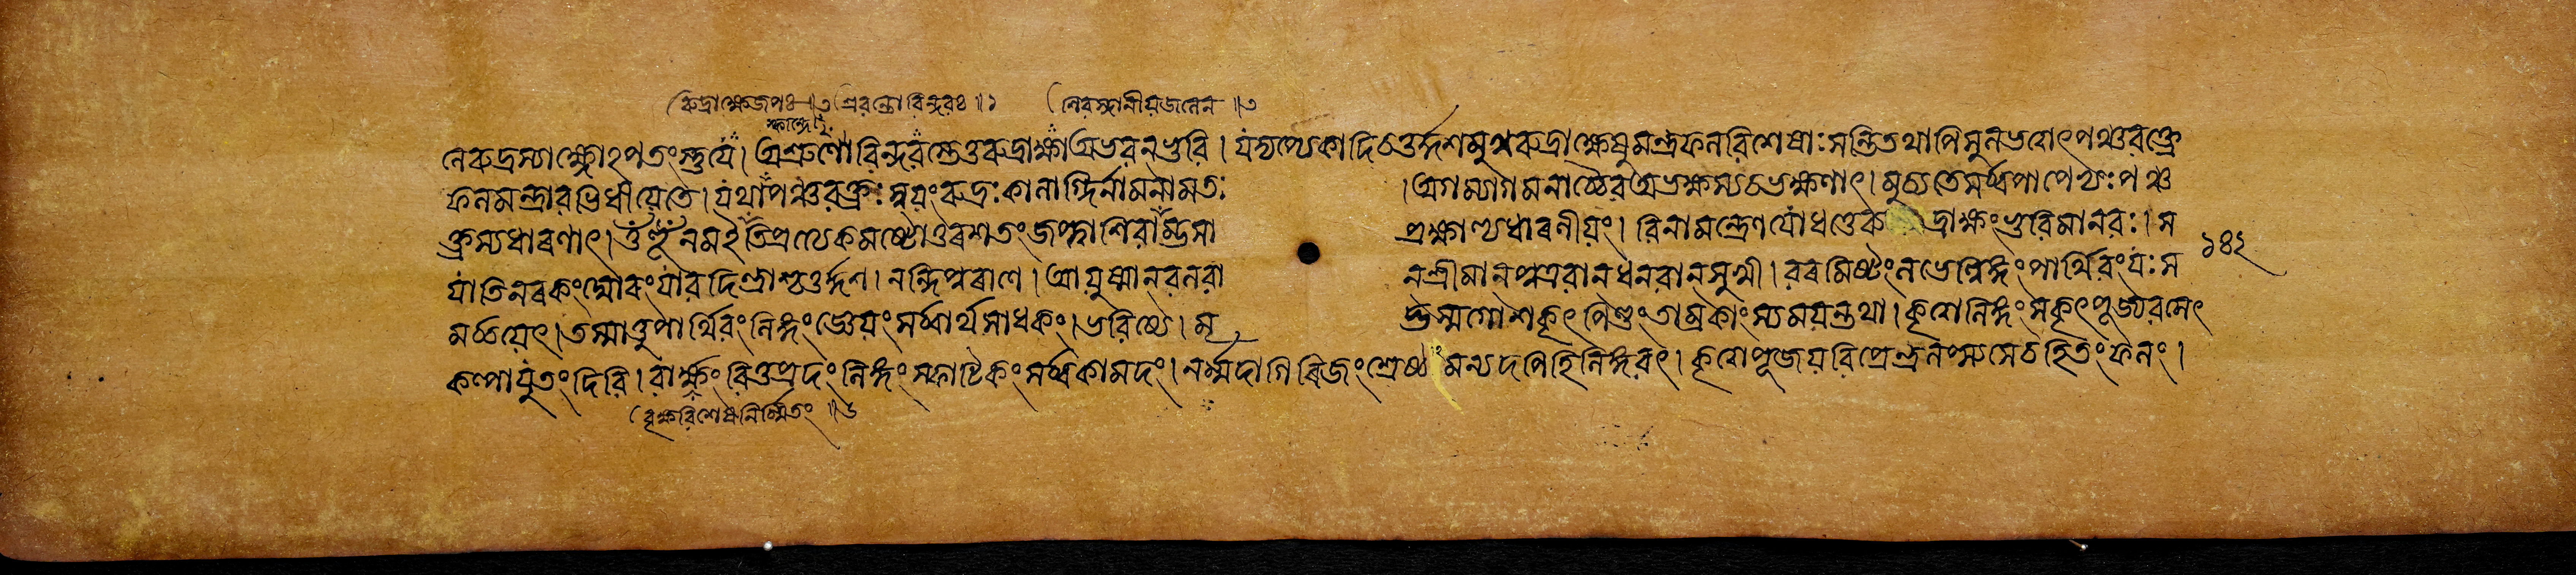 রুদ্রাক্ষেজপঃ ॥৩ অশ্রবন্তোবিন্দবঃ ॥১ শিবস্থানীয়জনেন ॥৩
স্কান্দেপু°
লেরুদ্রস্যাক্ষ্ণোঽপতংস্তুযে। অশ্রুণোবিন্দবস্তেতুরুদ্রাক্ষাঅভবনভুবি। যদ্যপ্যেকাদিচতুর্দ্দশমুখরুদ্রাক্ষেষুমন্ত্রফলবিশেষাঃসন্তিতথাপিসুলভত্বাৎপঞ্চবক্ত্রে
ফলমন্ত্রাবভিধীয়েতে। যথাপঞ্চবক্ত্রঃস্বয়ংরুদ্রঃকালাগ্নির্নামনামতঃ ।অগম্যাগমনাচ্চৈবঅভক্ষস্যচভক্ষণাৎ। মুচ্যতেসর্ব্বপাপেভ্যঃপঞ্চ
বক্ত্রস্যধারণাৎ। ওঁহূঁনমইতিপ্রত্যেকমষ্টোত্তরশতংজপ্ত্বাশিবাম্ভসা প্রক্ষাল্যধারণীয়ং। বিনামন্ত্রেণযোধত্তেরুদ্রাক্ষংভুবিমানবঃ। স
যাতিনরকংঘোরংযাবদিন্দ্রাশ্চতুর্দ্দশ। নন্দিপুরাণে। আয়ুষ্মানবলবা নশ্রীমানপুত্রবানধনবানসুখী। বরমিষ্টংলভেল্লিঙ্গংপার্থিবংযঃস ১৪২
মর্চ্চয়েৎ। তস্মাত্তুপার্থিবংলিঙ্গংজ্ঞেয়ংসর্ব্বার্থসাধকং। ভবিষ্যে। মৃ দ্ভস্মগোশকৃৎপিণ্ডংতাম্রকাংস্যময়ন্তথা। কৃত্বালিঙ্গংসকৃৎপূজ্যবসেৎ
কল্পাযুতংদিবি। বার্ক্ষংবিত্তপ্রদংলিঙ্গংস্ফাটিকংসর্ব্বকামদং। নর্ম্মদাগিরিজংশ্রেষ্ঠমন্যদপিহিলিঙ্গবৎ। কৃত্বাপূজয়বিপ্রেন্দ্রলপ্স্যসেচহিতংফলং।
বৃক্ষবিশেষনির্ম্মিতং ॥৬